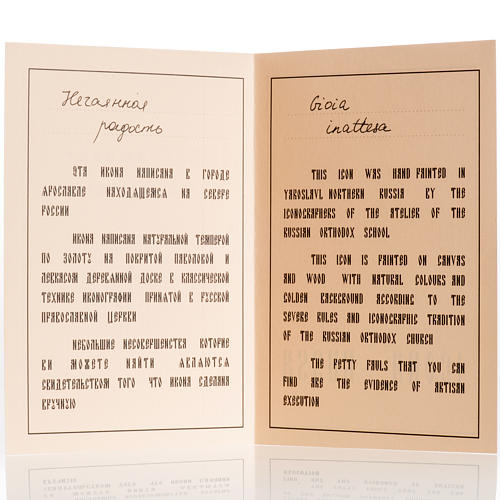 Нечаянная
радость
ЭТА ИКОНА НАПИСАНА В ГОРОДЕ
ЯРОСЛАВЛЕ НАХОДЯЩЕМСЯ НА СЕВЕРЕ
РОССИИ
ИКОНА НАПИСАНА НАТУРАЛЬНОЙ ТЕМПЕРОЙ
ПО ЗОЛОТУ НА ПОКРИТОЙ ПАВОЛОКОЙ И
ЛЕВКАСОМ ДЕРЕВЯННОЙ ДОСКЕ В КЛАССИЧЕСКОЙ
ТЕХНИКЕ ИКОНОГРАФИИ ПРИНЯТОЙ В РУССКОЙ
ПРАВОСЛАВНОЙ ЦЕРКВИ
НЕБОЛЬШИЕ НЕСОВЕРШЕНСТВА КОТОРИЕ
ВИ МОЖЕТЕ НАЙТИ ЯВЛЯЮТСЯ
СВИДЕТЕЛЬСТВОМ ТОГО ЧТО ИКОНА СДЕЛАНА
ВРУЧНУЮ
Gioia
inattesa
THIS ICON WAS HAND PAINTED IN
YAROSLAVL NORTHERN RUSSIA BY THE
ICONOGRAPHERS OF THE ATELIER OF THE
RUSSIAN ORTHODOX SCHOOL
THIS ICON IS PAINTED ON CANVAS
AND WOOD WITH NATURAL COLOURS AND
GOLDEN BACKGROUND ACCORDING TO THE
SEVERE RULES AND ICONOGRAPHIC TRADITION
OF THE RUSSIAN ORTHODOX CHURCH
THE PETTY FAULS THAT YOU CAN
FIND ARE THE EVIDENCE OF ARTISAN
EXECUTION